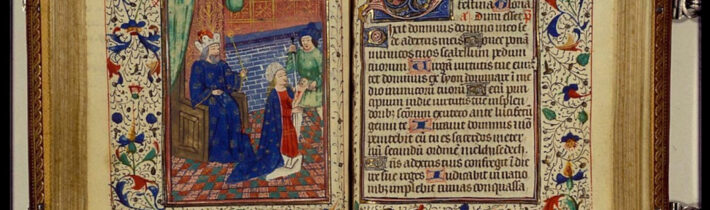 Dum esset
Dixit dominus domino meo se
de adextris meis Donec pona
inimicos tuos scabellum pedum
tuorum Virgam virtutis tue emit
tet dominus ex syon dominare i me
dio inimicorum tuorum Tecum prin
cipium in die virtutis tue insplen
doribz scorum ex utero ante luciferum
genui te Iuravit dominus et non
penitebit eum tu es sacerdos ineter
num secundum ordinem melchisedech
Dns adextris tuis confregit i die
ire sue reges Iudicabit in natio
nibz implebit ruinas conquassa